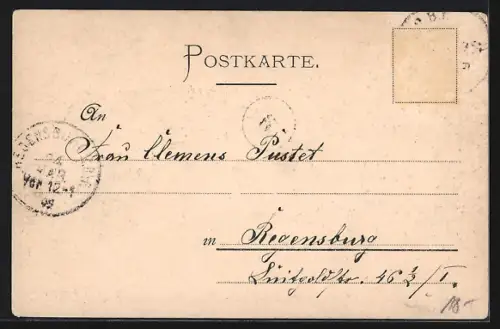 POSTKARTE.
An
Frau Clemens Pustet
in Regensburg
Luitpoldstr. 46 ½/I.
REGENSBURG
24
MAR
Vor 12-1
99
18-